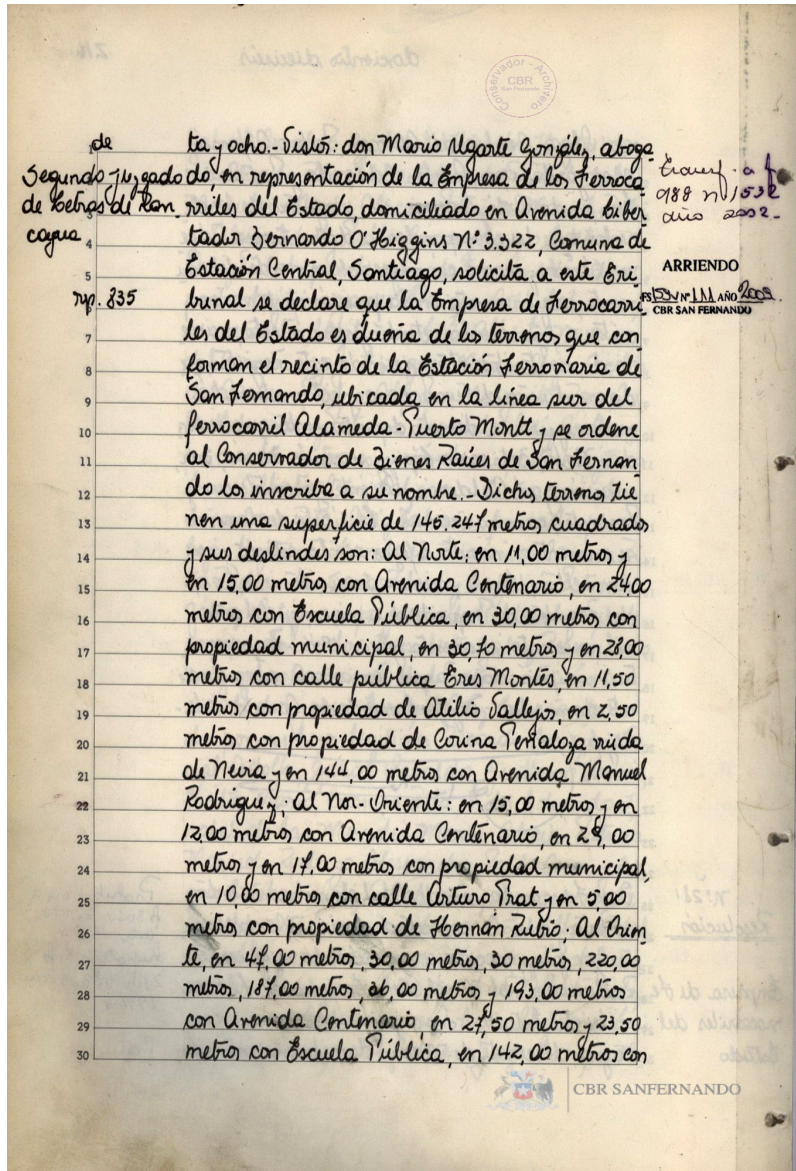 Conservador - Archivero
CBR
San Fernando
de
Segundo Juzgado
de Letras de Ran
cagua
rep. 835
ta y ocho.- Vistos: don Mario Ugarte González, aboga
do, en representación de la Empresa de los Ferroca
rriles del Estado, domiciliado en Avenida Liber
tador Bernardo O'Higgins Nº 3.322, Comuna de
Estación Central, Santiago, solicita a este Tri
bunal se declare que la Empresa de Ferrocarri
les del Estado es dueña de los terrenos que con
forman el recinto de la Estación Ferroviaria de
San Fernando, ubicada en la línea sur del
ferrocarril Alameda - Puerto Montt y se ordene
al Conservador de Bienes Raíces de San Fernan
do los inscriba a su nombre.- Dichos terrenos tie
nen una superficie de 145.247 metros cuadrados
y sus deslindes son: Al Norte: en 11,00 metros y
en 15,00 metros con Avenida Centenario, en 24,00
metros con Escuela Pública, en 30,00 metros con
propiedad municipal, en 30,70 metros y en 28,00
metros con calle pública Tres Montes, en 11,50
metros con propiedad de Atilio Vallejos, en 2,50
metros con propiedad de Corina Peñaloza viuda
de Neira y en 144,00 metros con Avenida Manuel
Rodríguez; Al Nor-Oriente: en 15,00 metros y en
12,00 metros con Avenida Centenario, en 29,00
metros y en 17,00 metros con propiedad municipal,
en 10,00 metros con calle Arturo Prat y en 5,00
metros con propiedad de Hernán Rubio; Al Orien
te, en 47,00 metros, 30,00 metros, 30 metros, 220,00
metros, 187,00 metros, 26,00 metros y 193,00 metros
con Avenida Centenario, en 27,50 metros y 23,50
metros con Escuela Pública, en 142,00 metros con
Transf. a f
988 n 1532
año 2002.-
ARRIENDO
FS 159v Nº 111 AÑO 2009.
CBR SAN FERNANDO
4
5
7
8
9
10
11
12
13
14
15
16
17
18
19
20
21
22
23
24
25
26
27
28
29
30
CBR SANFERNANDO